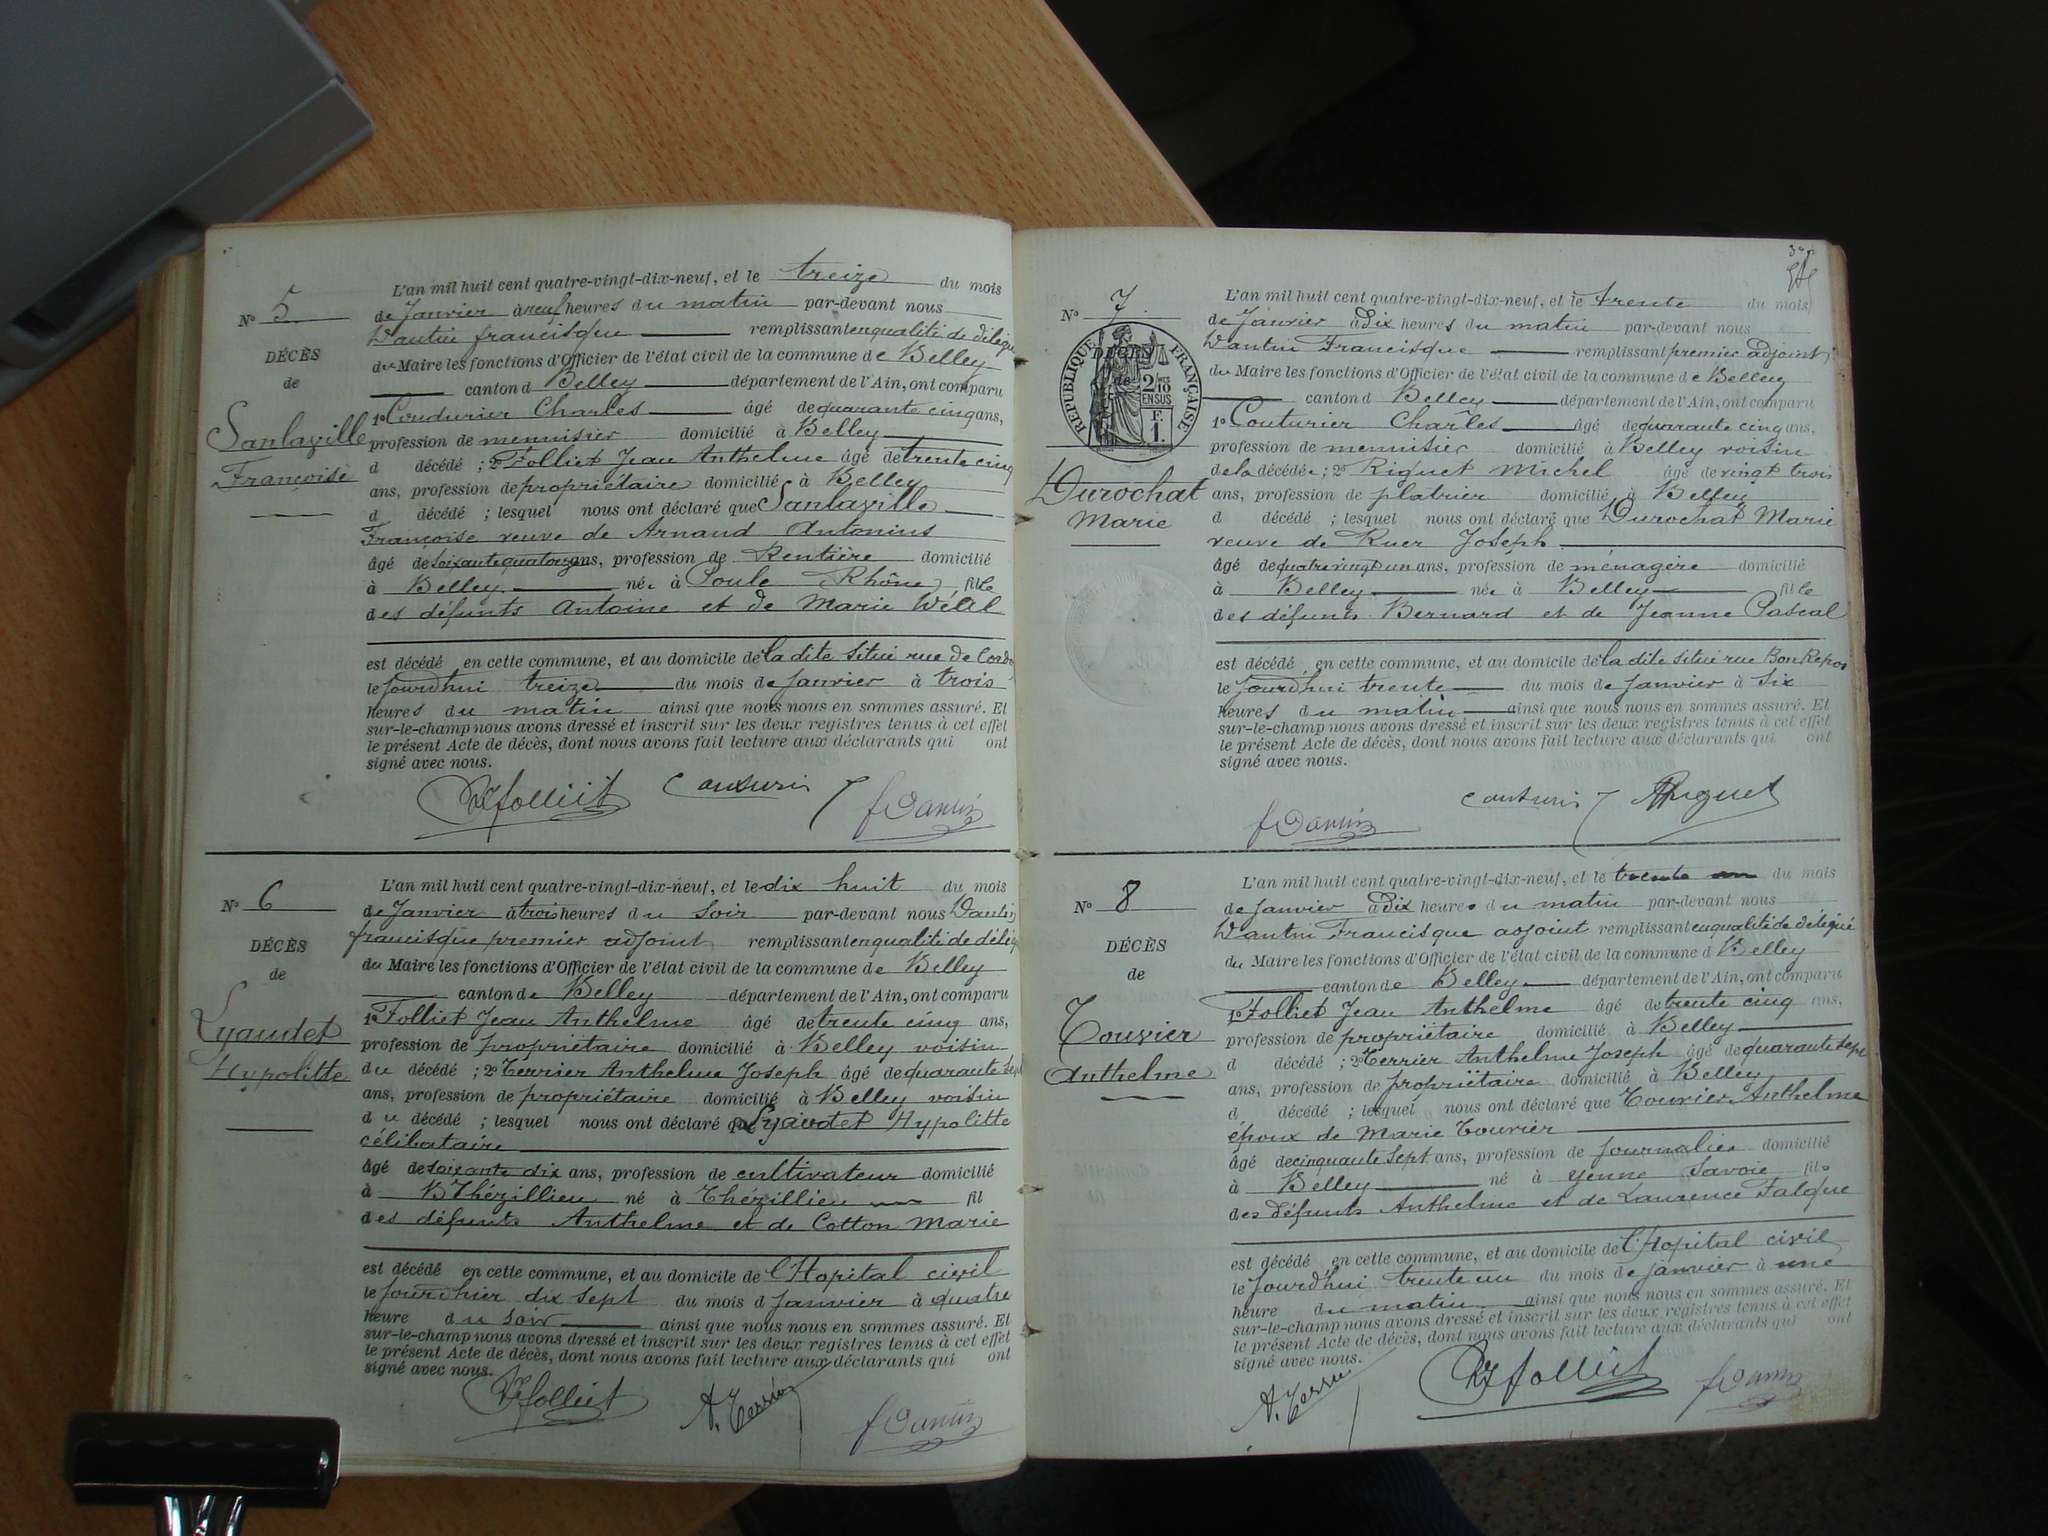 L'an mil huit cent quatre-vingt-dix-neuf, et le treize du mois
N° 5
de Janvier à neuf heures du matin par-devant nous
Dantin francisque remplissant en qualité de délégué
DÉCÈS
du Maire les fonctions d'Officier de l'état civil de la commune de Belley
de
canton d Belley département de l'Ain, ont comparu
Sanlaville
1° Couturier Charles âgé de quarante cinq ans,
profession de menuisier domicilié à Belley
Françoise
d décédé ; 2° Folliet Jean Anthelme âgé de trente cinq
ans, profession de propriétaire domicilié à Belley
d décédé ; lesquel nous ont déclaré que Sanlaville
Françoise veuve de Arnaud Antonius
âgé de soixante quatorze ans, profession de Rentière domicilié
à Belley née à Poule Rhône fille
des défunts Antoine et de Marie
est décédé en cette commune, et au domicile de la dite situé rue de
le jourd'hui treize du mois de janvier à trois
heures du matin ainsi que nous nous en sommes assuré. Et
sur-le-champ nous avons dressé et inscrit sur les deux registres tenus à cet effet
le présent Acte de décès, dont nous avons fait lecture aux déclarants qui ont
signé avec nous.
folliet couturier
f Dantin
L'an mil huit cent quatre-vingt-dix-neuf, et le dix huit du mois
N° 6
de Janvier à trois heures du soir par-devant nous Dantin
francisque premier adjoint remplissant en qualité de délég
DÉCÈS
du Maire les fonctions d'Officier de l'état civil de la commune de Belley
de
canton de Belley département de l'Ain, ont comparu
Lyaudet
1° Folliet Jean Anthelme âgé de trente cinq ans,
profession de propriétaire domicilié à Belley voisin
Hypolitte
du décédé ; 2° Terrier Anthelme Joseph âgé de quarante sept
ans, profession de propriétaire domicilié à Belley voisin
du décédé ; lesquel nous ont déclaré que Lyaudet Hypolitte
célibataire
âgé de soixante dix ans, profession de cultivateur domicilié
à Thézillieu né à Thézillieu fil
des défunts Anthelme et de Cotton Marie
est décédé en cette commune, et au domicile de l'Hopital civil
le jourd'hier dix sept du mois d janvier à quatre
heure du soir ainsi que nous nous en sommes assuré. Et
sur-le-champ nous avons dressé et inscrit sur les deux registres tenus à cet effet
le présent Acte de décès, dont nous avons fait lecture aux déclarants qui ont
signé avec nous.
folliet A. Terrier f Dantin
L'an mil huit cent quatre-vingt-dix-neuf, et le trente du mois
N° 7
de Janvier à Dix heures du matin par-devant nous
Dantin Francisque remplissant premier adjoint
DÉCÈS
du Maire les fonctions d'Officier de l'état civil de la commune de Belley
de
RÉPUBLIQUE FRANÇAISE
2 10
EN SUS
F.
1.
canton d Belley département de l'Ain, ont comparu
1° Couturier Charles âgé de quarante cinq ans,
profession de menuisier domicilié à Belley voisin
de la décédée ; 2° Riguet Michel âgé de vingt trois
Durochat
ans, profession de platrier domicilié à Belley
Marie
d décédé ; lesquel nous ont déclaré que Durochat Marie
veuve de Ruer Joseph
âgé de quatre vingt un ans, profession de ménagère domicilié
à Belley née à Belley fille
des défunts Bernard et de Jeanne Pascal
est décédé en cette commune, et au domicile de la dite situé rue Bon Repos
le jourd'hui trente du mois de janvier à six
heures du matin ainsi que nous nous en sommes assuré. Et
sur-le-champ nous avons dressé et inscrit sur les deux registres tenus à cet effet
le présent Acte de décès, dont nous avons fait lecture aux déclarants qui ont
signé avec nous.
couturier Riguet
f Dantin
L'an mil huit cent quatre-vingt-dix-neuf, et le trente un du mois
N° 8
de janvier à Dix heures du matin par-devant nous
Dantin Francisque adjoint remplissant en qualité de délégué
DÉCÈS
du Maire les fonctions d'Officier de l'état civil de la commune d Belley
de
canton de Belley département de l'Ain, ont comparu
Touvier
1° Folliet Jean Anthelme âgé de trente cinq ans,
profession de propriétaire domicilié à Belley
Anthelme
d décédé ; 2° Terrier Anthelme Joseph âgé de quarante sept
ans, profession de propriétaire domicilié à Belley
d décédé ; lesquel nous ont déclaré que Touvier Anthelme
époux de Marie Touvier
âgé de cinquante sept ans, profession de journalier domicilié
à Belley né à Yenne Savoie fils
des défunts Anthelme et de Laurence Falque
est décédé en cette commune, et au domicile de l'Hopital civil
le jourd'hui trente un du mois de janvier à une
heure du matin ainsi que nous nous en sommes assuré. Et
sur-le-champ nous avons dressé et inscrit sur les deux registres tenus à cet effet
le présent Acte de décès, dont nous avons fait lecture aux déclarants qui ont
signé avec nous.
A. Terrier folliet f Dantin